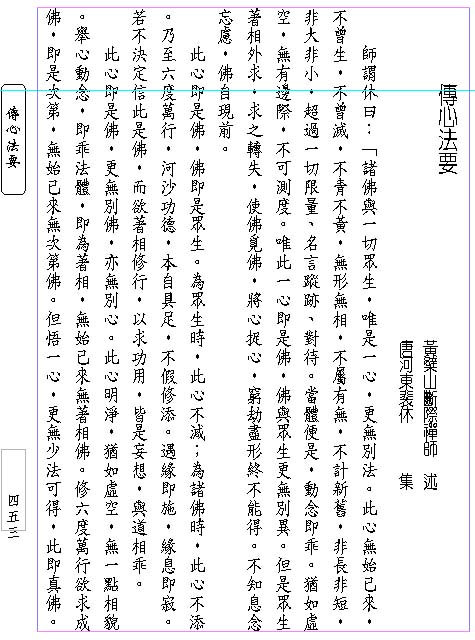 傳心法要
黃檗山斷際禪師　述
唐河東裴休　集
師謂休曰：「諸佛與一切眾生，唯是一心，更無別法。此心無始已來，
不曾生，不曾滅，不青不黃，無形無相，不屬有無，不計新舊，非長非短，
非大非小，超過一切限量、名言蹤跡、對待。當體便是，動念即乖。猶如虛
空，無有邊際，不可測度。唯此一心即是佛，佛與眾生更無別異。但是眾生
著相外求，求之轉失，使佛覓佛，將心捉心，窮劫盡形終不能得。不知息念
忘慮，佛自現前。
此心即是佛，佛即是眾生。為眾生時，此心不減；為諸佛時，此心不添
。乃至六度萬行，河沙功德，本自具足，不假修添。遇緣即施，緣息即寂。
若不決定信此是佛，而欲著相修行，以求功用，皆是妄想，與道相乖。
此心即是佛，更無別佛，亦無別心。此心明淨，猶如虛空，無一點相貌
。舉心動念，即乖法體，即為著相，無始已來無著相佛。修六度萬行欲求成
佛，即是次第，無始已來無次第佛。但悟一心，更無少法可得，此即真佛。
傳心法要
四五三